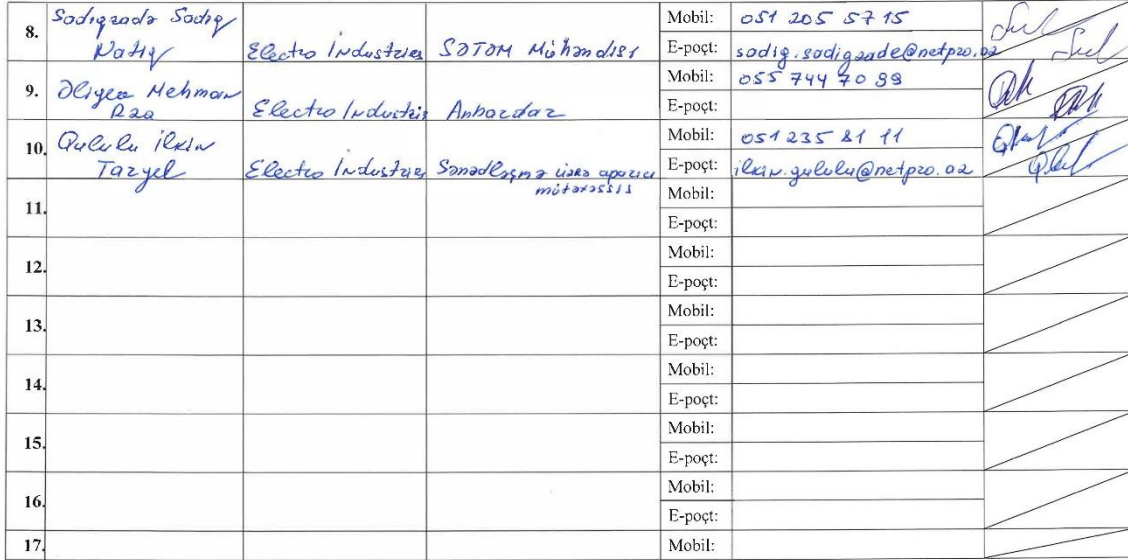 8. Sadıqzadə Sadıq Natiq Electro Industries SƏTƏM Mühəndisi Mobil: 051 205 57 15
E-poçt: sadig.sadigzade@netpro.az
9. Əliyev Mehman Rza Electro Industries Anbardar Mobil: 055 744 70 99
E-poçt:
10. Qululu İlkin Tariyel Electro Industries Sənədləşmə üzrə aparıcı mütəxəssis Mobil: 051 235 81 11
E-poçt: ilkin.gululu@netpro.az
11. Mobil:
E-poçt:
12. Mobil:
E-poçt:
13. Mobil:
E-poçt:
14. Mobil:
E-poçt:
15. Mobil:
E-poçt:
16. Mobil:
E-poçt:
17. Mobil: